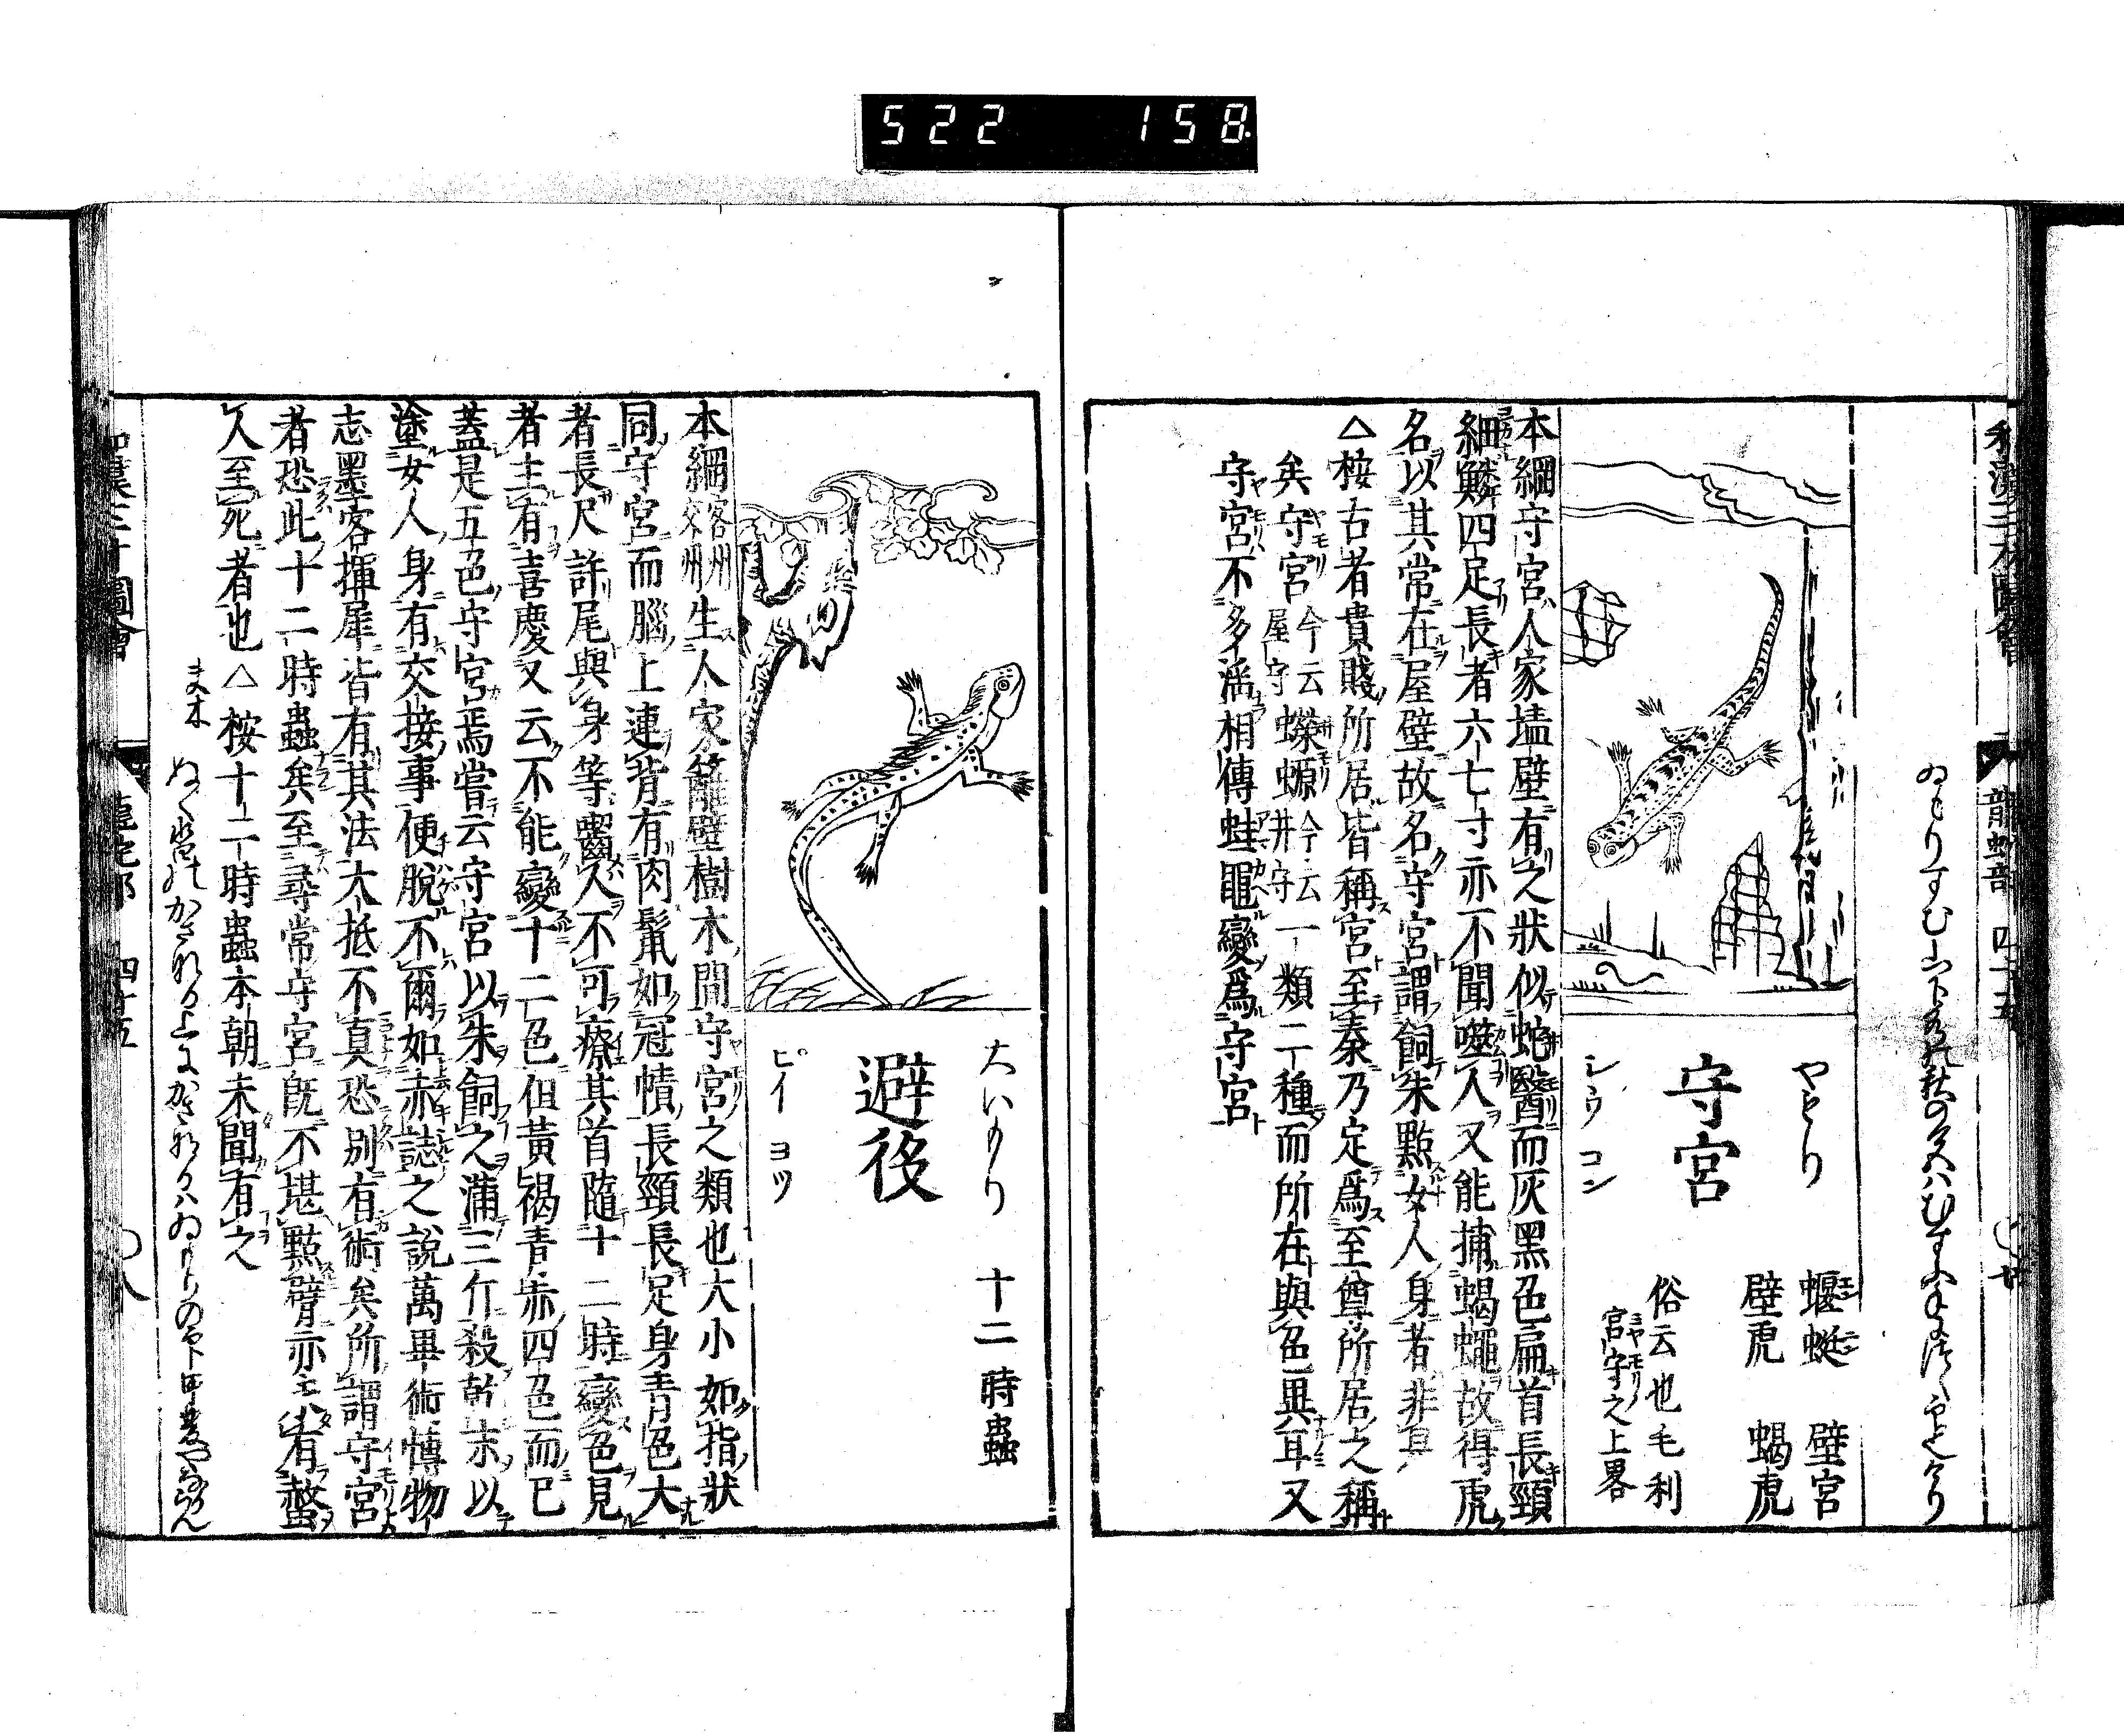 522 158
和漢三才圖會
龍蛇部 四十五
やもり
守宮
シウコン
蝘蜓 壁宮
壁虎 蝎虎
俗云也毛利
宮守之上畧
本綱守宮人家墻壁有之狀似蛇醫而灰黑色扁首長頸
細鱗四足長者六七寸亦不聞噬人又能捕蝎蠅故得虎
名以其常在屋壁故名守宮謂飼朱點女人身者非眞
△桉古者貴賤所居皆稱宮至秦乃定爲至尊所居之稱
矣守宮今云屋守蠑螈今云井守一類二種而所在與色異耳又
守宮不多滛相傳蛙黽變爲守宮
大いもり
十二時蟲
避役
ピイヨツ
本綱容州交州生人家籬壁樹木間守宮之類也大小如指狀
同守宮而腦上連背有肉鬣如冠幘長頸長足身青色大
者長尺許尾與身等嚙人不可療其首隨十二時變色見
者主有喜慶又云不能變十二色但黃褐青赤四色而已
蓋是五色守宮焉嘗云守宮以朱飼之滿三斤殺乾末以
塗女人身有交接事便脫不爾如赤誌之說萬畢術博物
志墨客揮犀皆有其法大抵不眞恐別有術矣所謂守宮
者恐此十二時蟲矣至尋常守宮旣不堪點臂亦未有螫
人至死者也△桉十二時蟲本朝未聞有之